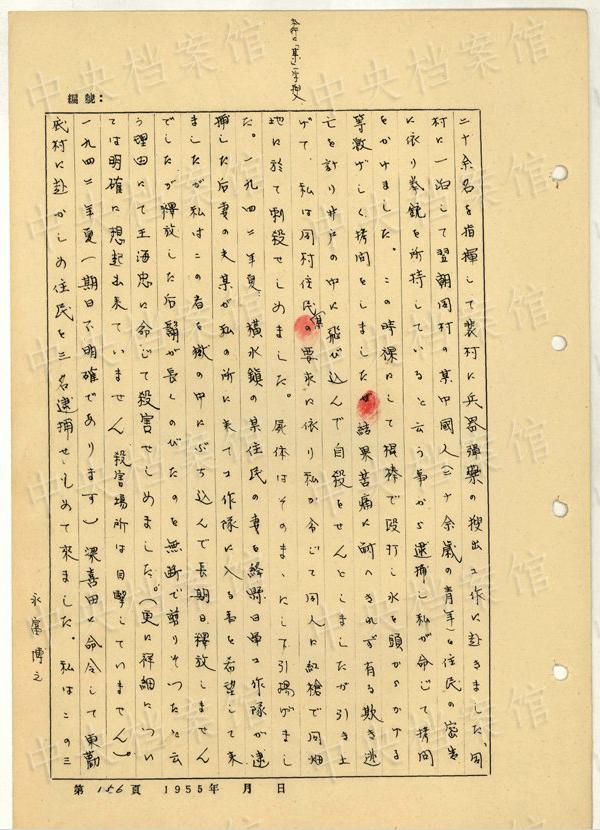 編號:
二十余名を指揮して裴村に兵器弾薬の捜出工作に赴きました、同
村に一泊して翌朝同村の某中國人(二十余歳の青年)を住民の密告
に依り拳銃を所持していると云う事から逮捕し私が命じて拷問
をかけました。この時裸にして棍棒で殴打し水を頭からかける
等激げしく拷問をしました結果苦痛に耐へきれず有る欺き逃
亡を計り井戸の中に飛び込んで自殺をせんとしましたが引き上
げて、私は同村住民の要求に依り私が令じて同人に紅槍で同畑
地に於て刺殺せしめました。屍体はそのまゝにして引揚げまし
た。一九四二年夏、横水鎮の某住民の妻を絳縣日軍工作隊が逮
捕した后妻の夫某が私の所に来て工作隊に入る事を希望して来
ましたが私はこの者を獄の中にぶち込んで長期日釈放しません
でしたが釈放した后鬍が長くのびたのを無断で剪りそつたと云
う理由にて王海忠に命じて殺害せしめました。(更に祥細につい
ては明確に想起出来ていません 殺害場所は目撃していません)
一九四二年夏(期日不明確であります)梁喜田に命令して東
底村に赴かしめ住民を三名逮捕せしめて来ました。私はこの三
永富博之
第156頁 1955年 月 日
中央档案馆